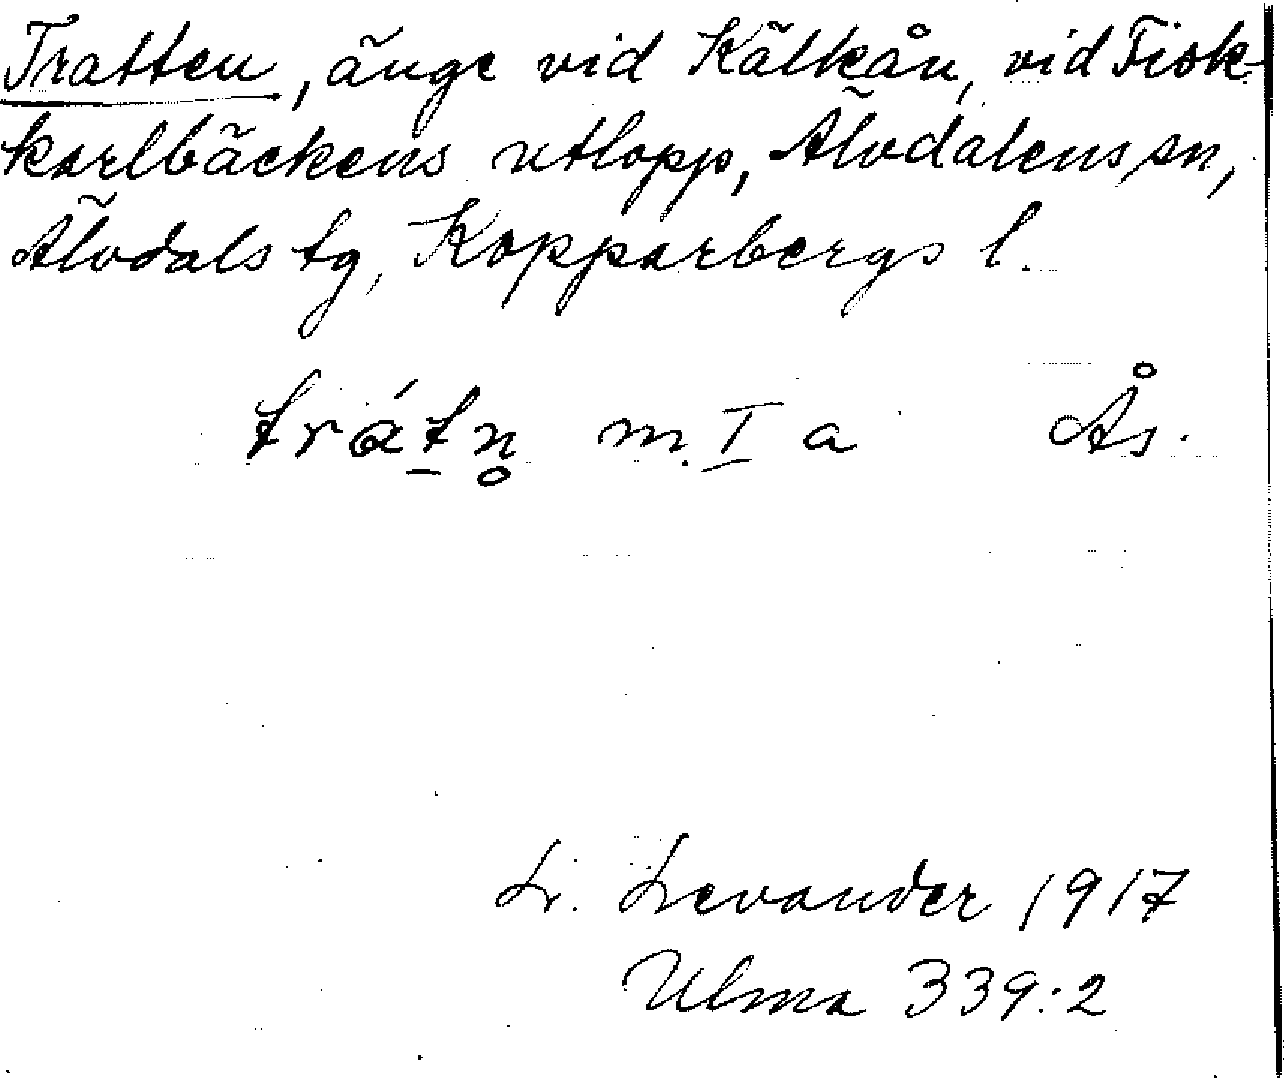 Tratten, änge vid Kälkån, vid Fisk-
karlbäckens utlopp, Älvdalens sn,
Älvdals tg, Kopparbergs l.
trát̲n̥ m. I a Ås.
L. Levander 1917
Ulma 339:2